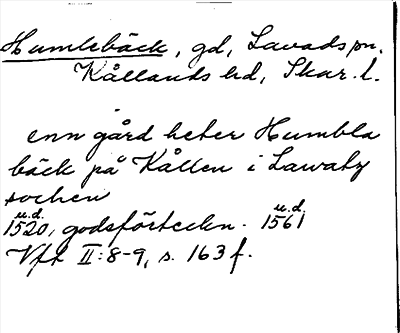 Humlebäck, gd, Lavads sn.
Kållands hd, Skar. l.
enn gård heter Humbla
bäck på Kållen i Lawatz
sochen
u.d. u.d.
1520, godsförteckn. 1561
Vft II:8-9, s. 163 f.